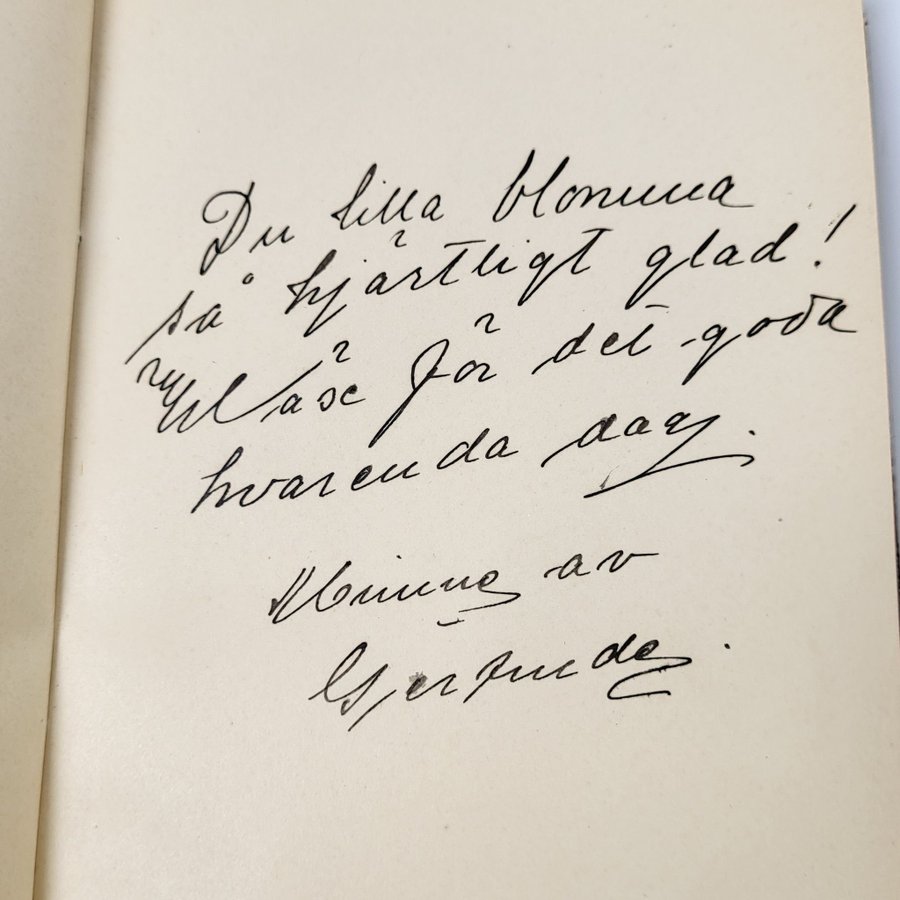 Du lilla blomma
så hjärtligt glad!
Väx för det goda
hvarenda dag.
Minne av
Gertrude.